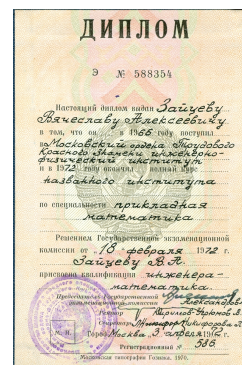 ДИПЛОМ
Э № 588354
Настоящий диплом выдан Зайцеву
Вячеславу Алексеевичу
в том, что он в 1966 году поступил
в Московский ордена Трудового
Красного Знамени инженерно-
физический институт
и в 1972 году окончил полный курс
названного института
по специальности прикладная
математика
Решением Государственной экзаменационной
комиссии от "16 февраля 1972 г.
Зайцеву В.А.
присвоена квалификация инженера-
математика.
Председатель Государственной
экзаменационной комиссии
Ректор
Секретарь
М. П. Город Москва 3 апреля 1972 г.
Регистрационный № 585
Московская типография Гознака. 1970.